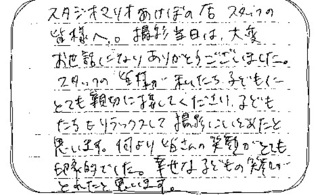 スタジオマリオあけぼの店 スタッフの
皆様へ。撮影当日は、大変
お世話になりありがとうございました。
スタッフの皆様が 私たち 子どもに
とても親切に接してくださり、子ども
たちもリラックスして 撮影に
思います。何より皆さんの笑顔がとても
印象的でした。幸せな子どもの笑顔が
とれたと思います。